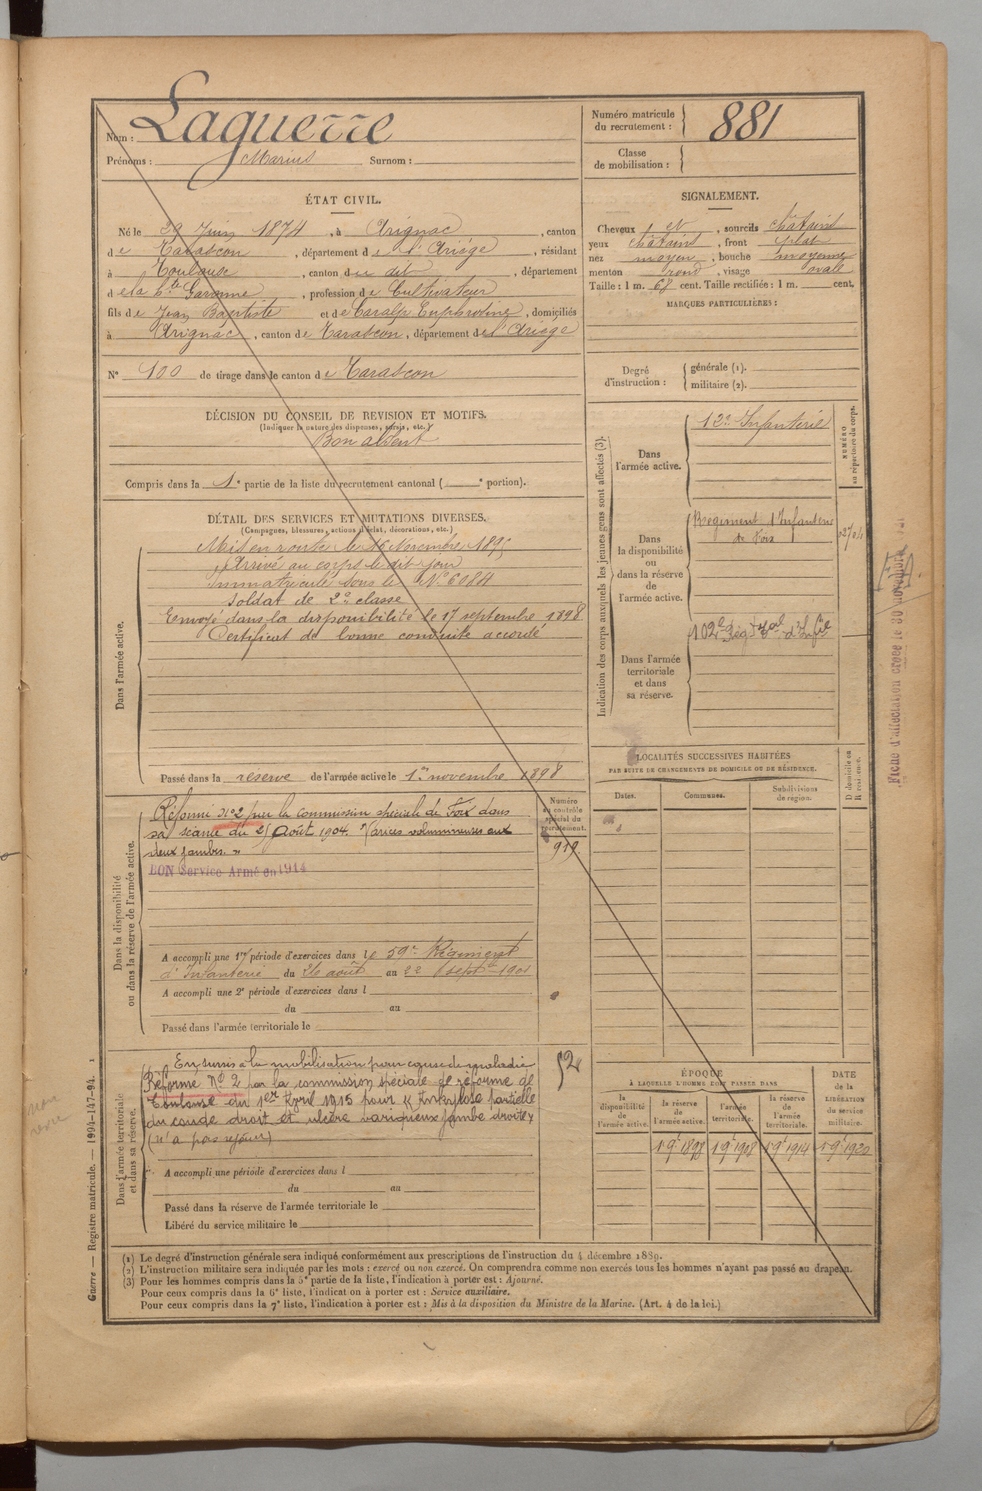 Nom : Laguerre
Prénoms : Marius Surnom :
Numéro matricule
du recrutement : 881
Classe
de mobilisation :
ÉTAT CIVIL.
Né le 29 Juin 1874, à Arignac, canton
de Tarascon, département de l'Ariège, résidant
à Toulouse, canton du dit, département
de la Hte Garonne, profession de Cultivateur
fils de Jean Baptiste et de Caralp Euphrosine, domiciliés
à Arignac, canton de Tarascon, département de l'Ariège
N° 100 de tirage dans le canton de Tarascon
DÉCISION DU CONSEIL DE REVISION ET MOTIFS.
(Indiquer la nature des dispenses, sursis, etc.)
Bon absent
Compris dans la 1e partie de la liste du recrutement cantonal ( e portion).
DÉTAIL DES SERVICES ET MUTATIONS DIVERSES.
(Campagnes, blessures, actions d'éclat, décorations, etc.)
Dans l'armée active.
Mis en route le 16 Novembre 1895
Arrivé au corps le dit jour
Immatriculé sous le N° 6084
Soldat de 2e classe
Envoyé dans la disponibilité le 17 septembre 1898
Certificat de bonne conduite accordé
Passé dans la réserve de l'armée active le 1er novembre 1898
Dans la disponibilité
ou dans la réserve de l'armée active.
Réformé N°2 par la commission spéciale de Foix dans
sa séance du 2 Août 1904. "Varices volumineuses aux
deux jambes. "
BON Service Armé en 1914
A accompli une 1re période d'exercices dans le 59e Régiment
d'Infanterie du 26 août au 22 sept 1901
A accompli une 2e période d'exercices dans l
du au
Passé dans l'armée territoriale le
Numéro
au contrôle
spécial du
recrutement.
919
Dans l'armée territoriale
et dans sa réserve.
En sursis à la mobilisation pour cause de maladie
Réformé N° 2 par la commission spéciale de réforme de
Toulouse du 1er Avril 1915 pour "Ankylose partielle
du coude droit et ulcère variqueux jambe droite"
(n'a pas rejoint)
52
A accompli une période d'exercices dans l
du au
Passé dans la réserve de l'armée territoriale le
Libéré du service militaire le
SIGNALEMENT.
Cheveux et, sourcils châtains
yeux châtains, front plat
nez moyen, bouche moyenne
menton rond, visage ovale
Taille : 1 m. 68 cent. Taille rectifiée : 1 m. cent.
MARQUES PARTICULIÈRES :
Degré
d'instruction :
générale (1).
militaire (2).
Indication des corps auxquels les jeunes gens sont affectés (3).
Dans
l'armée active.
12e Infanterie
NUMÉRO
au répertoire du corps.
Dans
la disponibilité
ou
dans la réserve
de
l'armée active.
Régiment d'Infanterie
de Foix
Dans l'armée
territoriale
et dans
sa réserve.
LOCALITÉS SUCCESSIVES HABITÉES
PAR SUITE DE CHANGEMENTS DE DOMICILE OU DE RÉSIDENCE.
Dates.
Communes.
Subdivisions
de région.
D domicile ou
R résidence.
ÉPOQUE
À LAQUELLE L'HOMME DOIT PASSER DANS
la
disponibilité
de
l'armée active.
la réserve
de
l'armée active.
l'armée
territoriale.
la réserve
de
l'armée
territoriale.
DATE
de la
LIBÉRATION
du service
militaire.
1 9e 1898
1 9e 1908
1 9e 1914
1 9e 1920
Fiche d'affectation créée le 30 novembre
(1) Le degré d'instruction générale sera indiqué conformément aux prescriptions de l'instruction du 4 décembre 1889.
(2) L'instruction militaire sera indiquée par les mots : exercé ou non exercé. On comprendra comme non exercés tous les hommes n'ayant pas passé au drapeau.
(3) Pour les hommes compris dans la 5e partie de la liste, l'indication à porter est : Ajourné.
Pour ceux compris dans la 6e liste, l'indication à porter est : Service auxiliaire.
Pour ceux compris dans la 7e liste, l'indication à porter est : Mis à la disposition du Ministre de la Marine. (Art. 4 de la loi.)
Guerre — Registre matricule. — 1994-147-94.